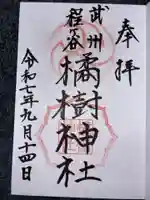 奉拝
武州
程ヶ谷
橘樹神社
令和七年九月十四日